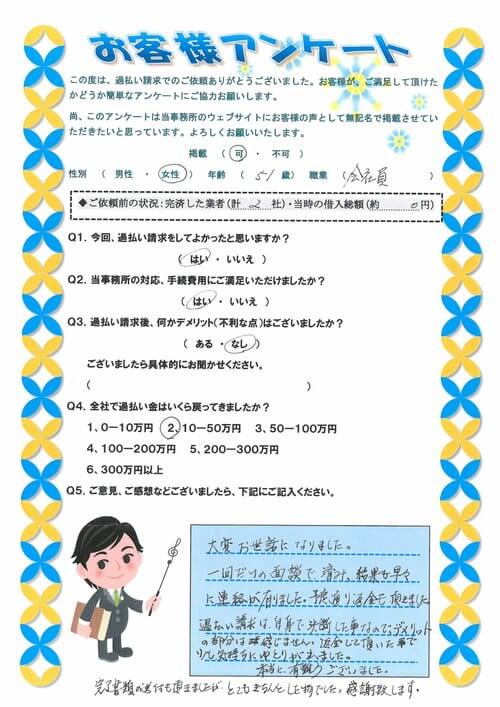 お客様アンケート
この度は、過払い請求でのご依頼ありがとうございました。お客様が、ご満足して頂けた
かどうか簡単なアンケートにご協力お願いします。
尚、このアンケートは当事務所のウェブサイトにお客様の声として無記名で掲載させてい
ただきたいと思っています。よろしくお願いいたします。
掲載 ( 可 ・ 不可 )
性別 ( 男性 ・ 女性 ) 年齢 ( 51 歳) 職業 ( 会社員 )
◆ご依頼前の状況:完済した業者(計 2 社)・当時の借入総額(約 0円)
Q1. 今回、過払い請求をしてよかったと思いますか?
( はい ・ いいえ )
Q2. 当事務所の対応、手続費用にご満足いただけましたか?
( はい ・ いいえ )
Q3. 過払い請求後、何かデメリット(不利な点)はございましたか?
( ある ・ なし )
ございましたら具体的にお聞かせください。
( )
Q4. 全社で過払い金はいくら戻ってきましたか?
1、0ー10万円 2、10ー50万円 3、50ー100万円
4、100ー200万円 5、200ー300万円
6、300万円以上
Q5. ご意見、ご感想などございましたら、下記にご記入ください。
大変お世話になりました。
一回だけの面談で済み、結果も早々
に連絡が有りました。予定通り返金も頂きました
過払い請求は、自身で決断した事なので、デメリット
の部分は感じません。返金して頂いた事で
気持ちにゆとりがありました。
本当に有難うございました。
完了書類の送付も頂きましたが、とてもきちんとした物でした。感謝致します。